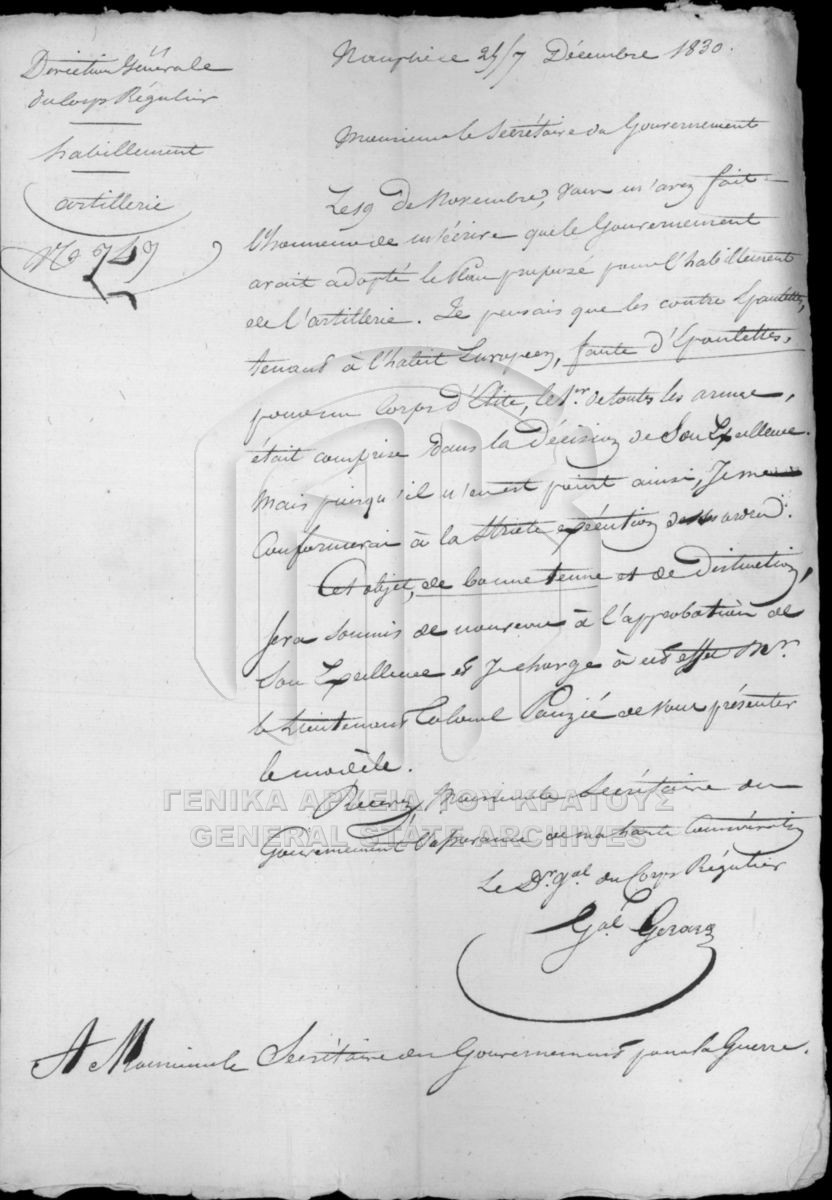 Direction Génle
du Corps Régulier
habillement
artillerie
No 747
Nauplie le 25/7 Décembre 1830.
Monsieur le Secrétaire du Gouvernement
Le 19 de Novembre, vous m'avez fait
l'honneur de m'écrire que le Gouvernement
avait adopté le Plan proposé pour l'habillement
de l'artillerie. Je pensais que les contre Epaulettes,
tenant à l'habit Européen, faute d'Epaulettes,
pour un Corps d'Elite, le 1er de toutes les armes,
était comprise dans la Décision de Son Excellence.
Mais puisqu'il n'en est point ainsi, Je me
Conformerai à la stricte exécution de ses ordres.
Cet objet, de bonne tenue et de distinction,
sera soumis de nouveau à l'approbation de
Son Excellence et Je charge à cet effet Mr.
le Lieutenant Colonel Pauzié de vous présenter
le modèle.
Recevez, Monsieur le Secrétaire du
Gouvernement l'assurance de ma haute Considération
Le Dr. gal. du Corps Régulier
Gal. Gerard
A Monsieur le Secrétaire du Gouvernement pour la Guerre.
ΓΕΝΙΚΑ ΑΡΧΕΙΑ ΤΟΥ ΚΡΑΤΟΥΣ
GENERAL STATE ARCHIVES